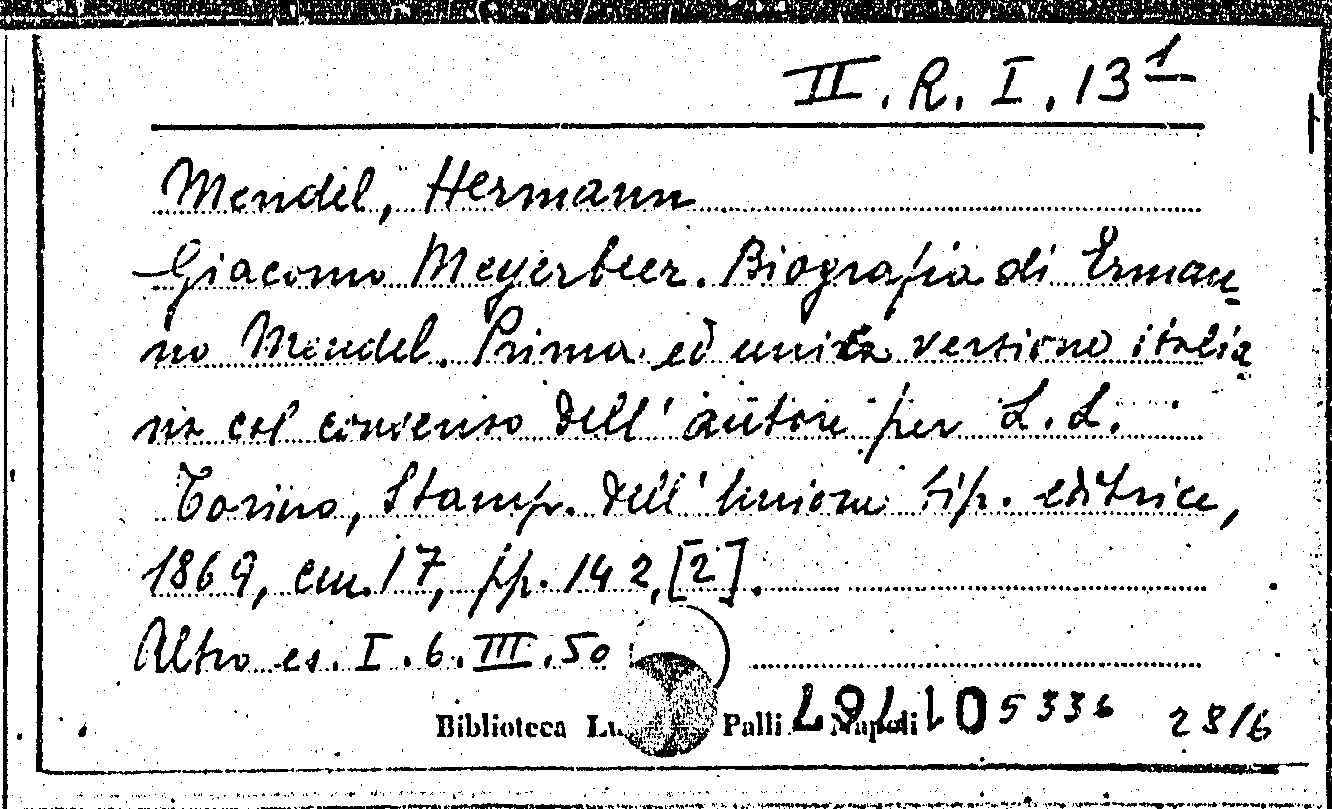 II. R. I. 13¹
Mendel, Hermann
Giacomo Meyerbeer. Biografia di Erman=
no Mendel. Prima ed unica versione italia=
na col consenso dell'autore per L. L.
Torino, Stamp. dell'Unione tip. editrice,
1869, cm. 17, pp. 142, [2].
Altro es. I. 6. III. 50
Biblioteca Lu Palli Napoli 5336 28/6